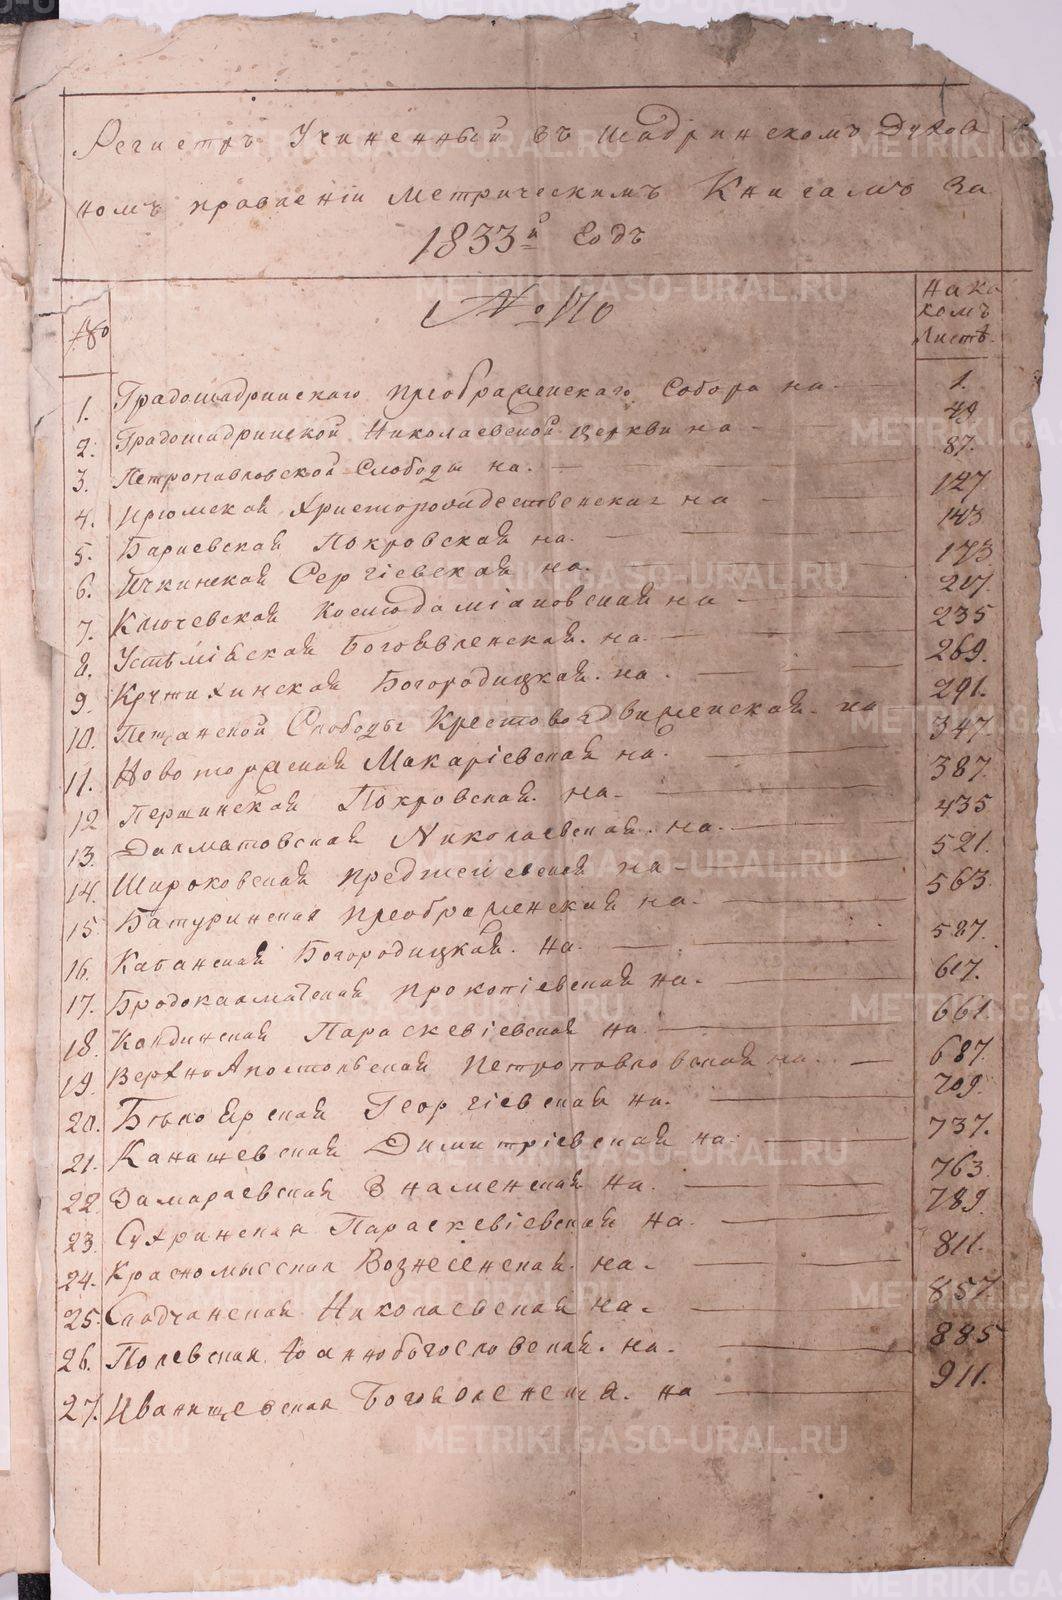 Регистръ Учиненный въ Шадринскомъ Духов
номъ правленіи Метрическимъ Книгамъ за
1833й Годъ
№ 170
На ко
комъ
Листѣ.
1. Градошадринскаго Преображенскаго Собора на 1.
2. Градошадринской Николаевской церкви на 49
3. Петропавловской Слободы на. 87.
4. Ирюмской Христорождественская на 127
5. Бариевской Покровской на. 143
6. Ичкинской Сергіевской на. 173
7. Ключевской Космодаміановской на 207.
8. Устьміаской Богоявленской. на. 235
9. Крутихинской Богородицкой. на. 269.
10. Песчанской Слободы Крестовоздвиженской. на 291.
11. Новоторжской Макаріевской на. 347
12 Першинской Покровской. на. 387.
13. Далматовской Николаевской. на. 435
14. Широковской Предтечевской на 521.
15 Батуринской Преображенской на. 563.
16. Кабанской Богородицкой. на. 587.
17. Бродокалматской Прокопіевской на. 617.
18. Колдинской Параскевіевской на 661.
19. ВерхноАпостольской Петропавловской на. 687.
20. Бѣлоярской Георгіевской на. 709.
21. Канашевской Димитріевской на. 737.
22. Замараевской Знаменской на. 763.
23. Сухринской Параскевіевской на. 789.
24. Красномысской Вознесенской. на. 811.
25. Сладчанской Николаевской на. 857.
26. Полевской Іоаннобогословской. на. 885
27. Иванищевской Богоявленской. на 911.
METRIKI.GASO-URAL.RU